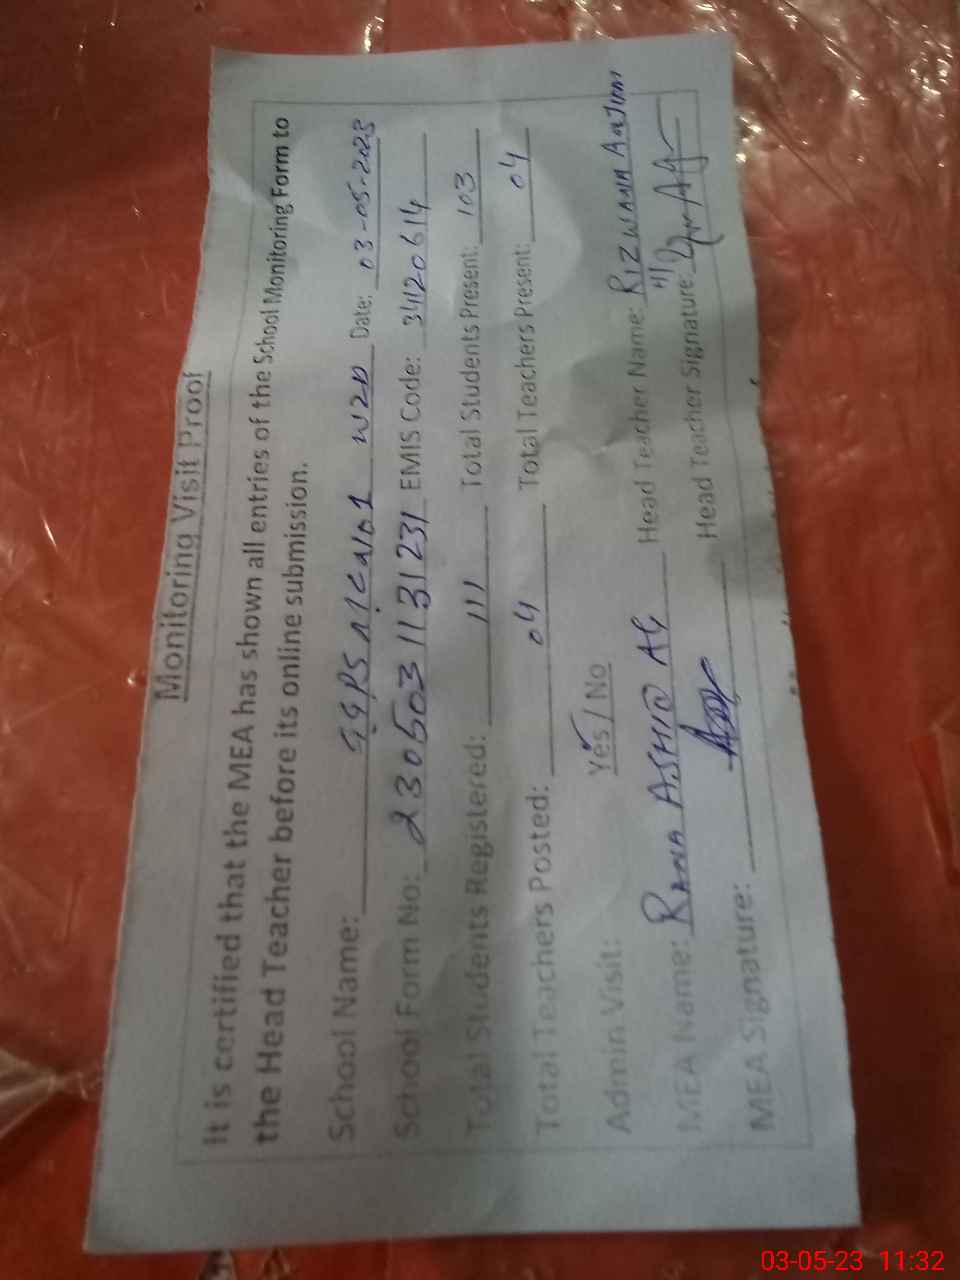 Monitoring Visit Proof
It is certified that the MEA has shown all entries of the School Monitoring Form to
the Head Teacher before its online submission.
School Name: GGPS W2D Date: 03-05-2023
School Form No: 2305031131231 EMIS Code: 34120614
Total Students Registered: 111 Total Students Present: 103
Total Teachers Posted: 04 Total Teachers Present: 04
Admin Visit: Yes / No
MEA Name: RANA ASHIQ Head Teacher Name: RIZWANA ANJUM
MEA Signature: Head Teacher Signature:
03-05-23 11:32